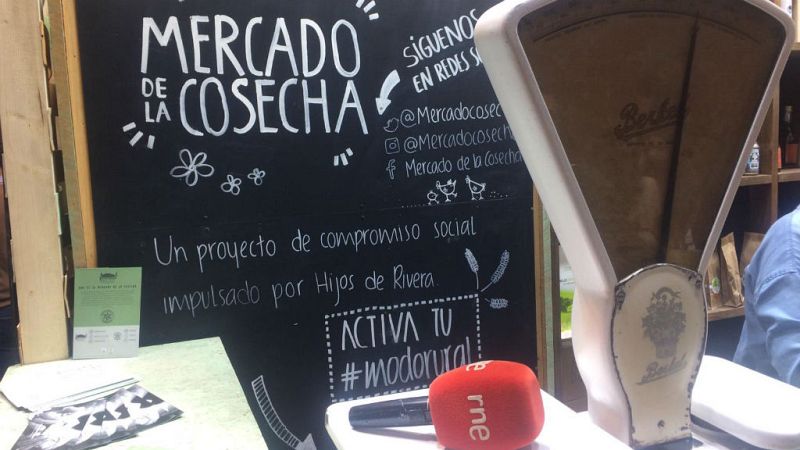 MERCADO
DE LA COSECHA
SÍGUENOS
EN REDES
@Mercadocosech
@Mercadocosech
Mercado de la Cosecha
Un proyecto de compromiso social
impulsado por Hijos de Rivera.
ACTIVA TU
#modorural
rne
Berkel
Berkel